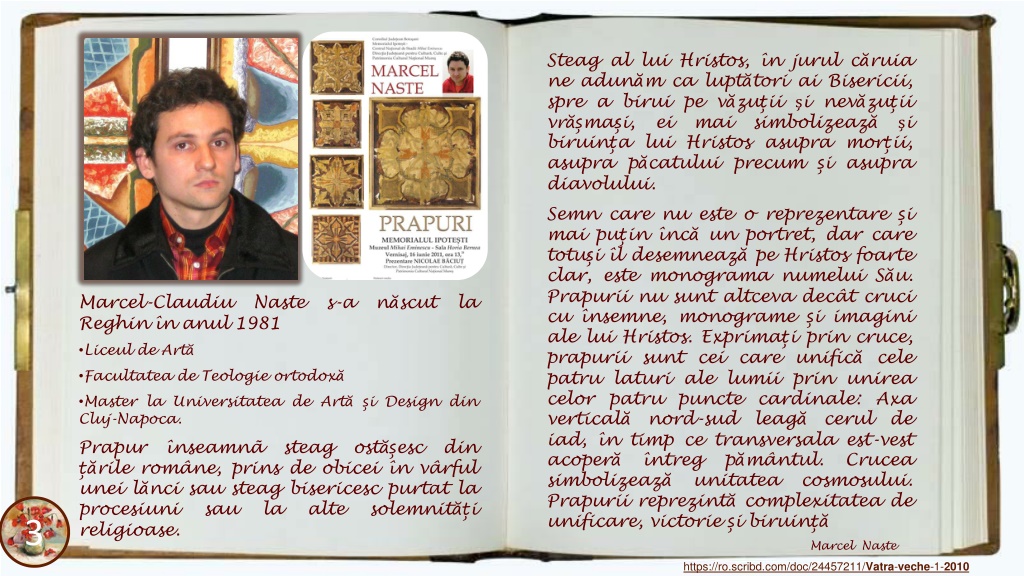 Consiliul Județean Botoșani
Memorialul Ipotești -
Centrul Național de Studii Mihai Eminescu
MARCEL
NASTE
PRAPURI
MEMORIALUL IPOTEȘTI
Muzeul Mihai Eminescu - Sala Horia Bernea
Vernisaj, 16 iunie 2011, ora 13,
Prezentare NICOLAE BĂCIUȚ
Marcel-Claudiu Naste s-a născut la
Reghin în anul 1981
•Liceul de Artă
•Facultatea de Teologie ortodoxă
•Master la Universitatea de Artă și Design din
Cluj-Napoca.
Prapur înseamnă steag ostășesc din
țările române, prins de obicei în vârful
unei lănci sau steag bisericesc purtat la
procesiuni sau la alte solemnități
religioase.
3
Steag al lui Hristos, în jurul căruia
ne adunăm ca luptători ai Bisericii,
spre a birui pe văzuții și nevăzuții
vrășmași, ei mai simbolizează și
biruința lui Hristos asupra morții,
asupra păcatului precum și asupra
diavolului.
Semn care nu este o reprezentare și
mai puțin încă un portret, dar care
totuși îl desemnează pe Hristos foarte
clar, este monograma numelui Său.
Prapurii nu sunt altceva decât cruci
cu însemne, monograme și imagini
ale lui Hristos. Exprimați prin cruce,
prapurii sunt cei care unifică cele
patru laturi ale lumii prin unirea
celor patru puncte cardinale: Axa
verticală nord-sud leagă cerul de
iad, în timp ce transversala est-vest
acoperă întreg pământul. Crucea
simbolizează unitatea cosmosului.
Prapurii reprezintă complexitatea de
unificare, victorie și biruință
Marcel Naste
https://ro.scribd.com/doc/24457211/Vatra-veche-1-2010